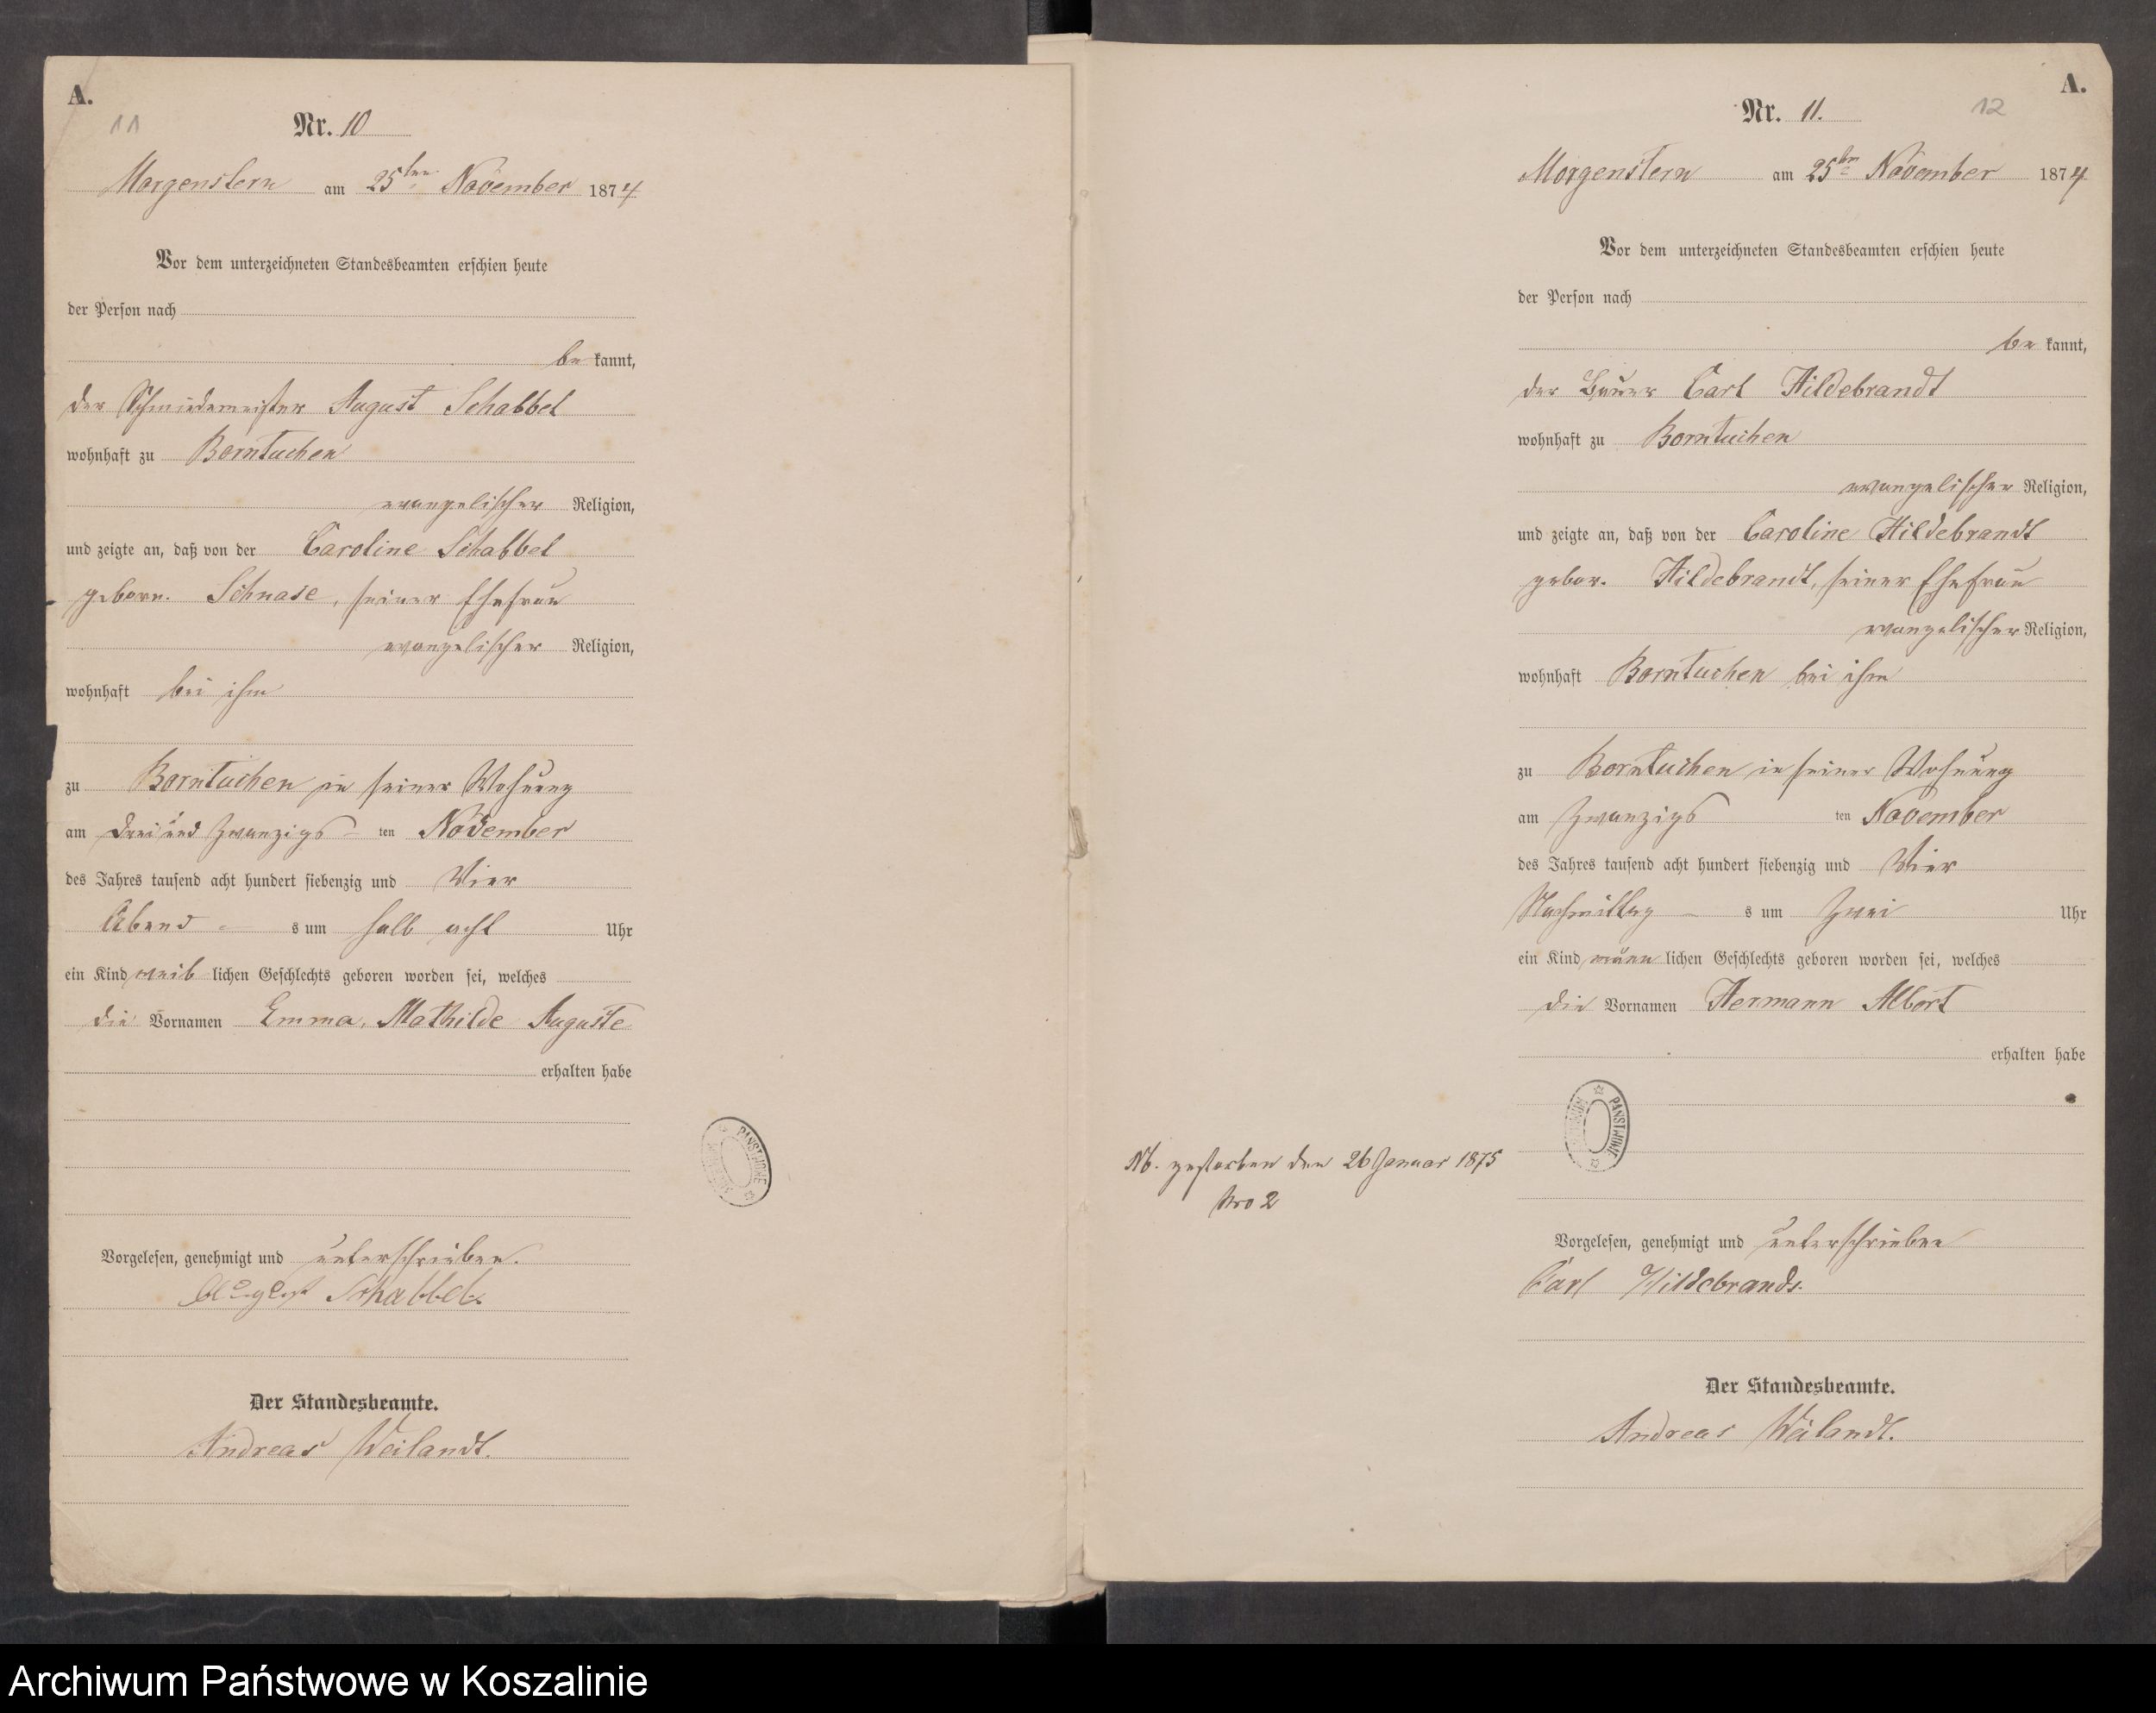 A.
11
Nr. 10
Morgenstern am 25ten November 1874
Vor dem unterzeichneten Standesbeamten erschien heute
der Person nach
be kannt,
der Schmiedemeister August Schabbel
wohnhaft zu Borntuchen
evangelischer Religion,
und zeigte an, daß von der Caroline Schabbel
geborn. Schnase, seiner Ehefrau
evangelischer Religion,
wohnhaft bei ihm
zu Borntuchen in seiner Wohnung
am drei und zwanzigs ten November
des Jahres tausend acht hundert siebenzig und Vier
Abend s um halb acht Uhr
ein Kind weib lichen Geschlechts geboren worden sei, welches
die Vornamen Emma, Mathilde Auguste
erhalten habe
PAŃSTWOWE
Vorgelesen, genehmigt und unterschrieben.
August Schabbel
Der Standesbeamte.
Andreas Weilandt.
A.
12
Nr. 11.
Morgenstern am 25ten November 1874
Vor dem unterzeichneten Standesbeamten erschien heute
der Person nach
be kannt,
der Bauer Carl Hildebrandt
wohnhaft zu Borntuchen
evangelischer Religion,
und zeigte an, daß von der Caroline Hildebrandt
gebor. Hildebrandt, seiner Ehefrau
evangelischer Religion,
wohnhaft Borntuchen bei ihm
zu Borntuchen in seiner Wohnung
am zwanzigs ten November
des Jahres tausend acht hundert siebenzig und Vier
Nachmittag s um zwei Uhr
ein Kind männ lichen Geschlechts geboren worden sei, welches
die Vornamen Hermann Albert
erhalten habe
PAŃSTWOWE
Nb. gestorben den 26 Januar 1875
Nro 2
Vorgelesen, genehmigt und unterschrieben
Carl Hildebrandt.
Der Standesbeamte.
Andreas Weilandt.
Archiwum Państwowe w Koszalinie